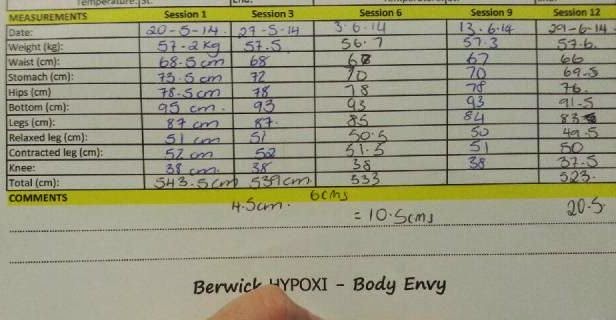 Temperature: St. End:
MEASUREMENTS Session 1 Session 3 Session 6 Session 9 Session 12
Date: 20-5-14. 27-5-14 3-6-14 13.6.14 29-6-14
Weight (kg): 57-2kg 57.5 56.7 57.3 57.6
Waist (cm): 68.5cm 68 68 67 66
Stomach (cm): 73.5cm 72 70 70 69.5
Hips (cm) 78.5cm 78 78 78 76.
Bottom (cm): 95 cm. 93 93 93 91.5
Legs (cm): 87 cm 87. 85 84 83
Relaxed leg (cm): 51 cm 51 50.5 50 49.5
Contracted leg (cm): 52 cm 52 51.5 51 50
Knee: 38 cm. 38 38 38 37.5
Total (cm): 543.5cm 539cm 533 523.
COMMENTS 6cms
4.5cm. = 10.5cms 20.5
Berwick HYPOXI - Body Envy